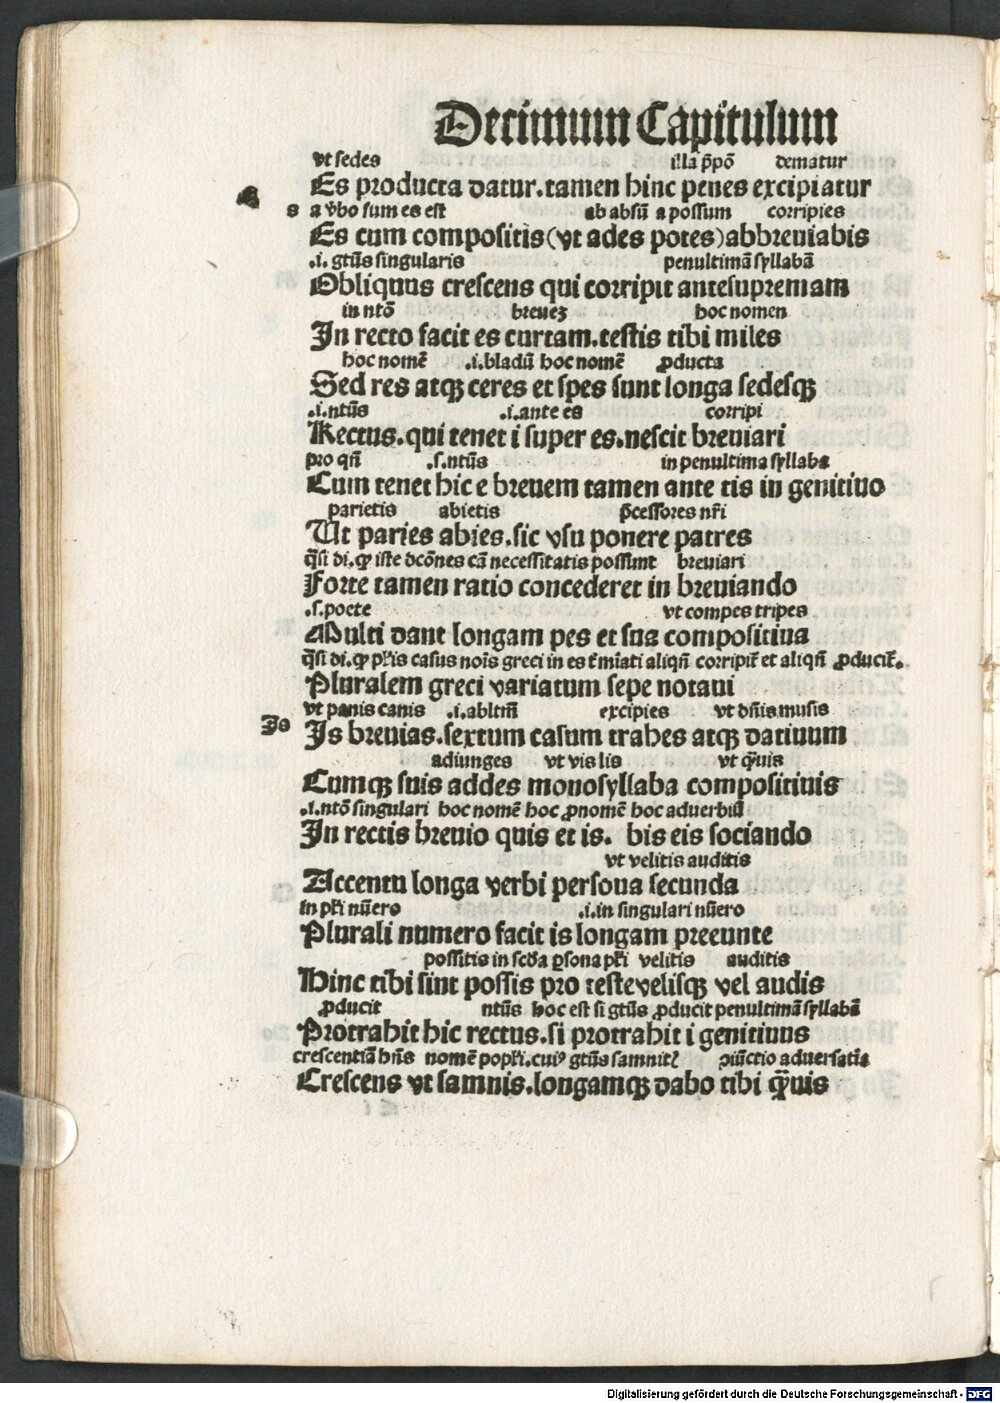 Decimum Capitulum
vt sedes illa p̄pō dematur
Es producta datur.tamen hinc penes excipiatur
s a v̄bo sum es est ab absū a possum corripies
Es cum compositis(vt ades potes)abbreuiabis
.i. gtūs singularis penultimā syllabā
Obliquus crescens qui corripit antesupremam
in ntō breuez hoc nomen
In recto facit es curtam.testis tibi miles
hoc nomē .i.bladū hoc nomē ꝓducta
Sed res atqꝫ ceres et spes sunt longa sedesqꝫ
.i.ntūs .i.ante es corripi
Rectus.qui tenet i super es.nescit breuiari
pro qn̄ .s.ntūs in penultima syllaba
Cum tenet hic e breuem tamen ante tis in genitiuo
parietis abietis p̄cessores nr̄i
Ut paries abies.sic vsu ponere patres
q̄si di. ꝙ iste dcōnes cā necessitatis possunt breuiari
Forte tamen ratio concederet in breuiando
.s.poete vt compes tripes
Multi dant longam pes et sua compositiua
q̄si di. ꝙ pl̄is casus nois greci in es t̄miati aliqn̄ corripit̄ et aliqn̄ ꝓducit̄.
Pluralem greci variatum sepe notaui
vt panis canis .i.abltm̄ excipies vt dn̄is musis
Is Is breuias.sextum casum trahes atqꝫ datiuum
adiunges vt vis lis vt q̄uis
Cumqꝫ suis addes monosyllaba compositiuis
.i.ntō singulari hoc nomē hoc ꝓnomē hoc aduerbiū
In rectis breuio quis et is. bis eis sociando
vt velitis auditis
Accentu longa verbi persoua secunda
in pl̄i nūero .i.in singulari nūero
Plurali numero facit is longam preeunte
possitis in scd̄a ꝑsona pl̄i velitis auditis
Hinc tibi sint possis pro teste velisqꝫ vel audis
ꝓducit ntūs hoc est si gtūs ꝓducit penultimā syllabā
Protrahit hic rectus.si protrahit i genitiuus
crescentiā hn̄s nomē popl̄i.cuiꝰ gtūs samnitꝭ ꝯiūctio aduersatia
Crescens vt samnis.longamqꝫ dabo tibi q̄uis
Digitalisierung gefördert durch die Deutsche Forschungsgemeinschaft - DFG